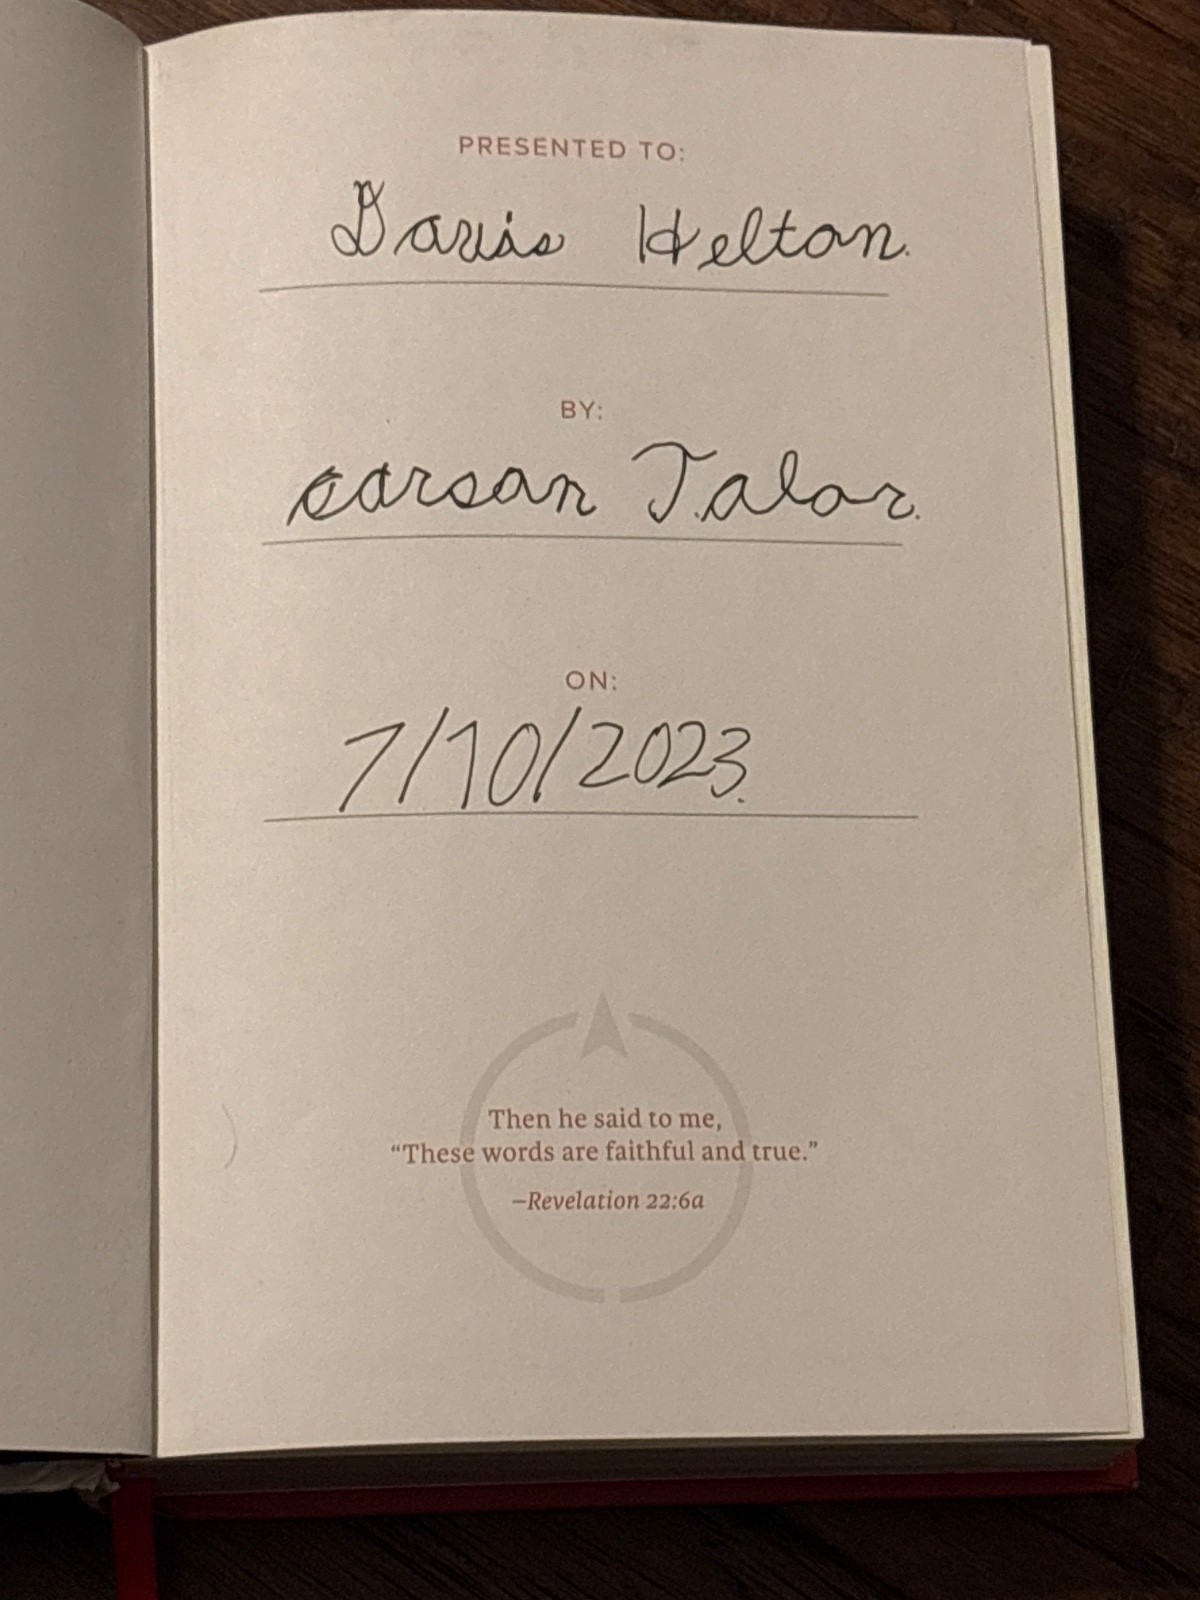 PRESENTED TO:
Davis Helton.
BY:
carson Talor.
ON:
7/10/2023.
Then he said to me,
“These words are faithful and true.”
–Revelation 22:6a